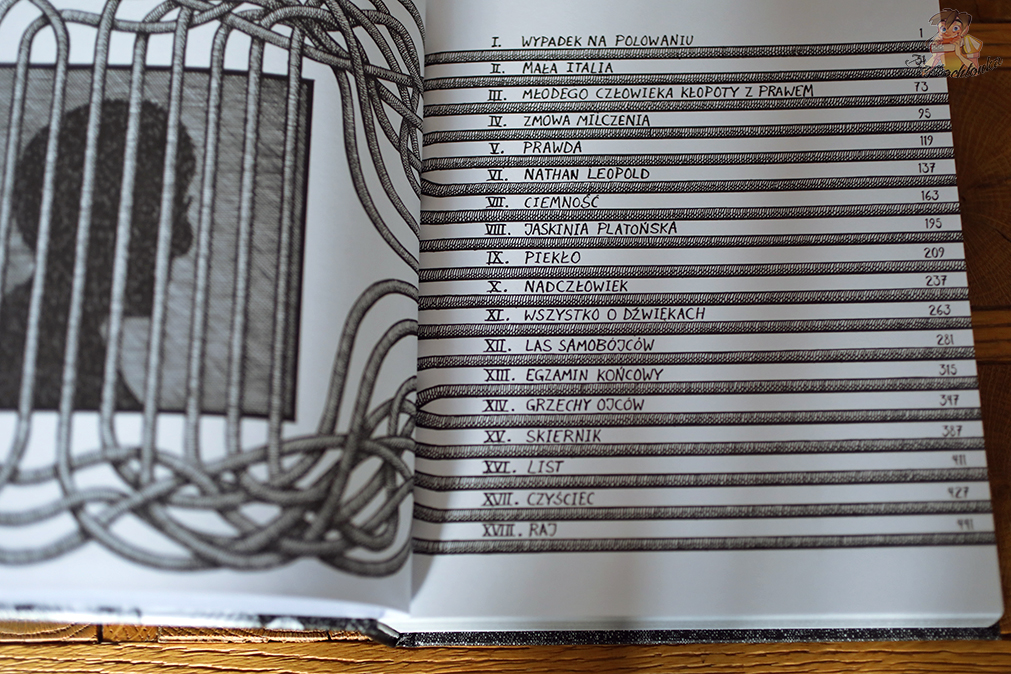 I. WYPADEK NA POLOWANIU 1
II. MAŁA ITALIA 31
III. MŁODEGO CZŁOWIEKA KŁOPOTY Z PRAWEM 73
IV. ZMOWA MILCZENIA 95
V. PRAWDA 119
VI. NATHAN LEOPOLD 137
VII. CIEMNOŚĆ 163
VIII. JASKINIA PLATOŃSKA 195
IX. PIEKŁO 209
X. NADCZŁOWIEK 237
XI. WSZYSTKO O DŹWIĘKACH 263
XII. LAS SAMOBÓJCÓW 281
XIII. EGZAMIN KOŃCOWY 315
XIV. GRZECHY OJCÓW 347
XV. SKIERNIK 387
XVI. LIST 411
XVII. CZYŚCIEC 427
XVIII. RAJ 441